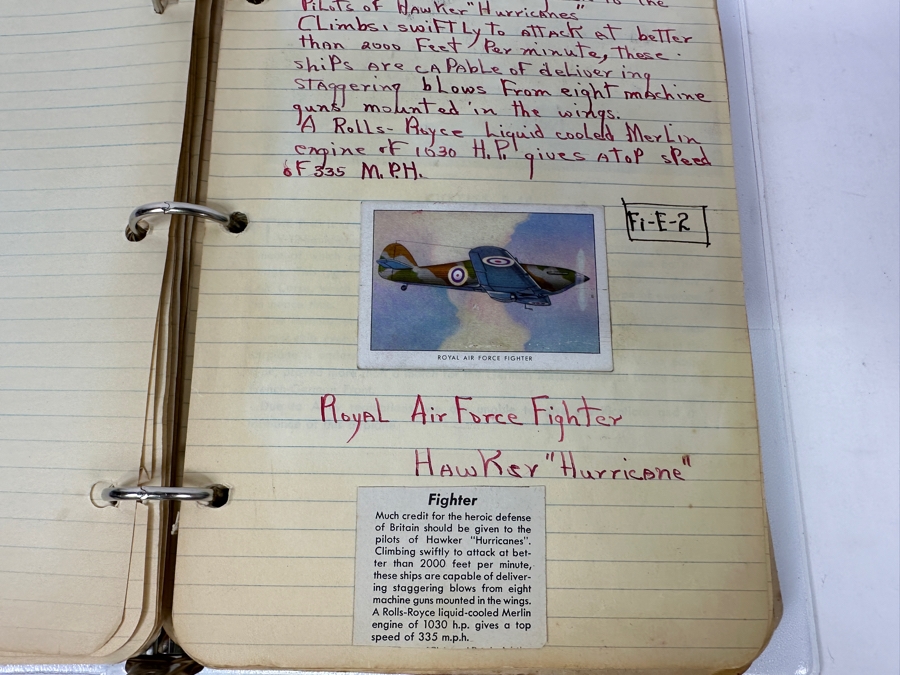 to the
Pilots of Hawker "Hurricanes"
Climbs, swiftly to attack at better
than 2000 Feet Per minute, these
ships are capable of delivering
staggering blows from eight machine
guns mounted in the wings.
A Rolls-Royce Liquid cooled Merlin
engine of 1030 H.P. gives a top speed
of 335 M.P.H.
Fi-E-2
ROYAL AIR FORCE FIGHTER
Royal Air Force Fighter
Hawker "Hurricane"
Fighter
Much credit for the heroic defense
of Britain should be given to the
pilots of Hawker "Hurricanes".
Climbing swiftly to attack at bet-
ter than 2000 feet per minute,
these ships are capable of deliver-
ing staggering blows from eight
machine guns mounted in the wings.
A Rolls-Royce liquid-cooled Merlin
engine of 1030 h.p. gives a top
speed of 335 m.p.h.